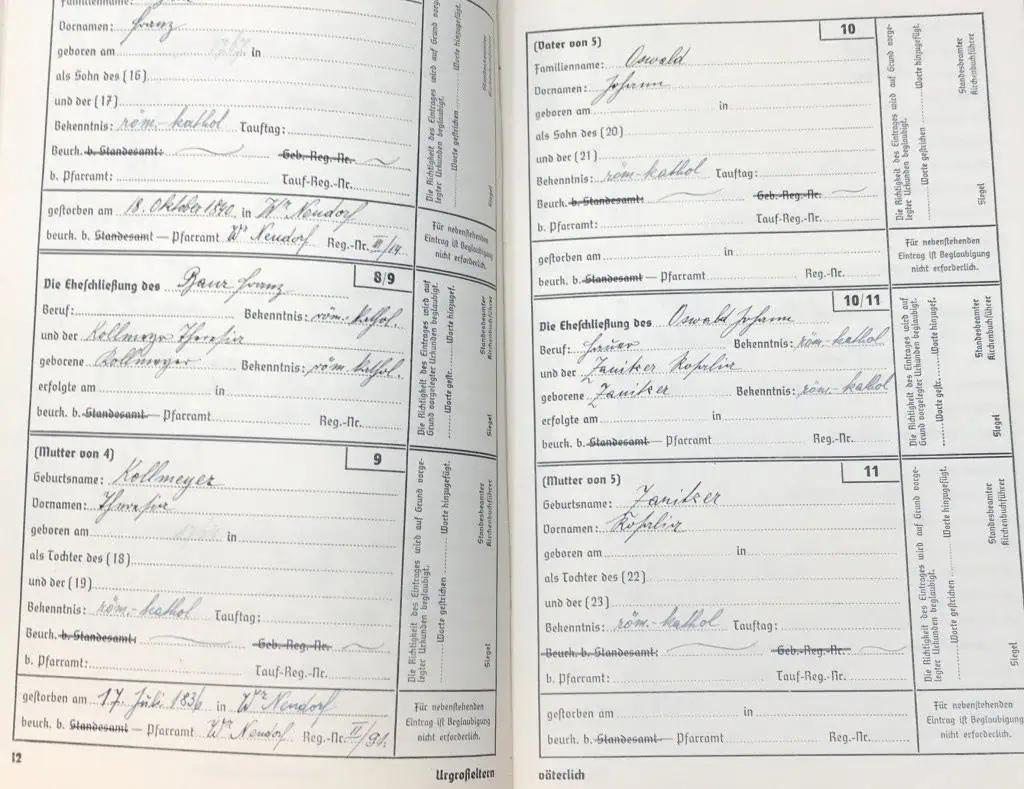 Familienname:
Vornamen: Franz
geboren am in
als Sohn des (16)
und der (17)
Bekenntnis: röm.-kathol Tauftag:
Beurk. b. Standesamt: Geb.-Reg.-Nr.
b. Pfarramt: Tauf-Reg.-Nr.
Die Richtigkeit des Eintrages wird auf Grund vorgelegter Urkunden beglaubigt.
Worte gestrichen Worte hinzugefügt.
Standesbeamter
Kirchenbuchführer
Siegel
gestorben am 18. Oktober in Wr Neudorf
beurk. b. Standesamt — Pfarramt Wr Neudorf Reg.-Nr. III/14
Für nebenstehenden
Eintrag ist Beglaubigung
nicht erforderlich.
8/9
Die Eheschließung des Baur Franz
Beruf: Bekenntnis: röm.-kathol.
und der Kollmeyer Theresia
geborene Kollmeyer Bekenntnis: röm.-kathol.
erfolgte am in
beurk. b. Standesamt — Pfarramt Reg.-Nr.
Die Richtigkeit des Eintrages wird auf
Grund vorgelegter Urkunden beglaubigt.
Worte gestr. Worte hinzugef.
Standesbeamter
Kirchenbuchführer
Siegel
(Mutter von 4) 9
Geburtsname: Kollmeyer
Vornamen: Theresia
geboren am in
als Tochter des (18)
und der (19)
Bekenntnis: röm.-kathol Tauftag:
Beurk. b. Standesamt: Geb.-Reg.-Nr.
b. Pfarramt: Tauf-Reg.-Nr.
Die Richtigkeit des Eintrages wird auf Grund vorge-
legter Urkunden beglaubigt.
Worte gestrichen Worte hinzugefügt.
Standesbeamter
Kirchenbuchführer
Siegel
gestorben am 17. Juli 1836 in Wr Neudorf
beurk. b. Standesamt — Pfarramt Wr Neudorf Reg.-Nr. II/91.
Für nebenstehenden
Eintrag ist Beglaubigung
nicht erforderlich.
12
Urgroßeltern
(Vater von 5) 10
Familienname: Oswald
Vornamen: Johann
geboren am in
als Sohn des (20)
und der (21)
Bekenntnis: röm.-kathol Tauftag:
Beurk. b. Standesamt: Geb.-Reg.-Nr.
b. Pfarramt: Tauf-Reg.-Nr.
Die Richtigkeit des Eintrages wird auf Grund vorge-
legter Urkunden beglaubigt.
Worte gestrichen Worte hinzugefügt.
Standesbeamter
Kirchenbuchführer
Siegel
gestorben am in
beurk. b. Standesamt — Pfarramt Reg.-Nr.
Für nebenstehenden
Eintrag ist Beglaubigung
nicht erforderlich.
10/11
Die Eheschließung des Oswald Johann
Beruf: Hauer Bekenntnis: röm.-kathol
und der Zanitzer Rosalia
geborene Zanitzer Bekenntnis: röm.-kathol
erfolgte am in
beurk. b. Standesamt — Pfarramt Reg.-Nr.
Die Richtigkeit des Eintrages wird auf
Grund vorgelegter Urkunden beglaubigt.
Worte gestr. Worte hinzugef.
Standesbeamter
Kirchenbuchführer
Siegel
(Mutter von 5) 11
Geburtsname: Zanitzer
Vornamen: Rosalia
geboren am in
als Tochter des (22)
und der (23)
Bekenntnis: röm.-kathol Tauftag:
Beurk. b. Standesamt: Geb.-Reg.-Nr.
b. Pfarramt: Tauf-Reg.-Nr.
Die Richtigkeit des Eintrages wird auf Grund vorge-
legter Urkunden beglaubigt.
Worte gestrichen Worte hinzugefügt.
Standesbeamter
Kirchenbuchführer
Siegel
gestorben am in
beurk. b. Standesamt — Pfarramt Reg.-Nr.
Für nebenstehenden
Eintrag ist Beglaubigung
nicht erforderlich.
väterlich